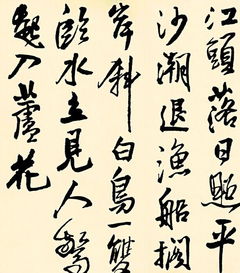 江頭落日照平
沙潮退漁船擱
岸斜白鳥一雙
臨水立見人驚
起入蘆花